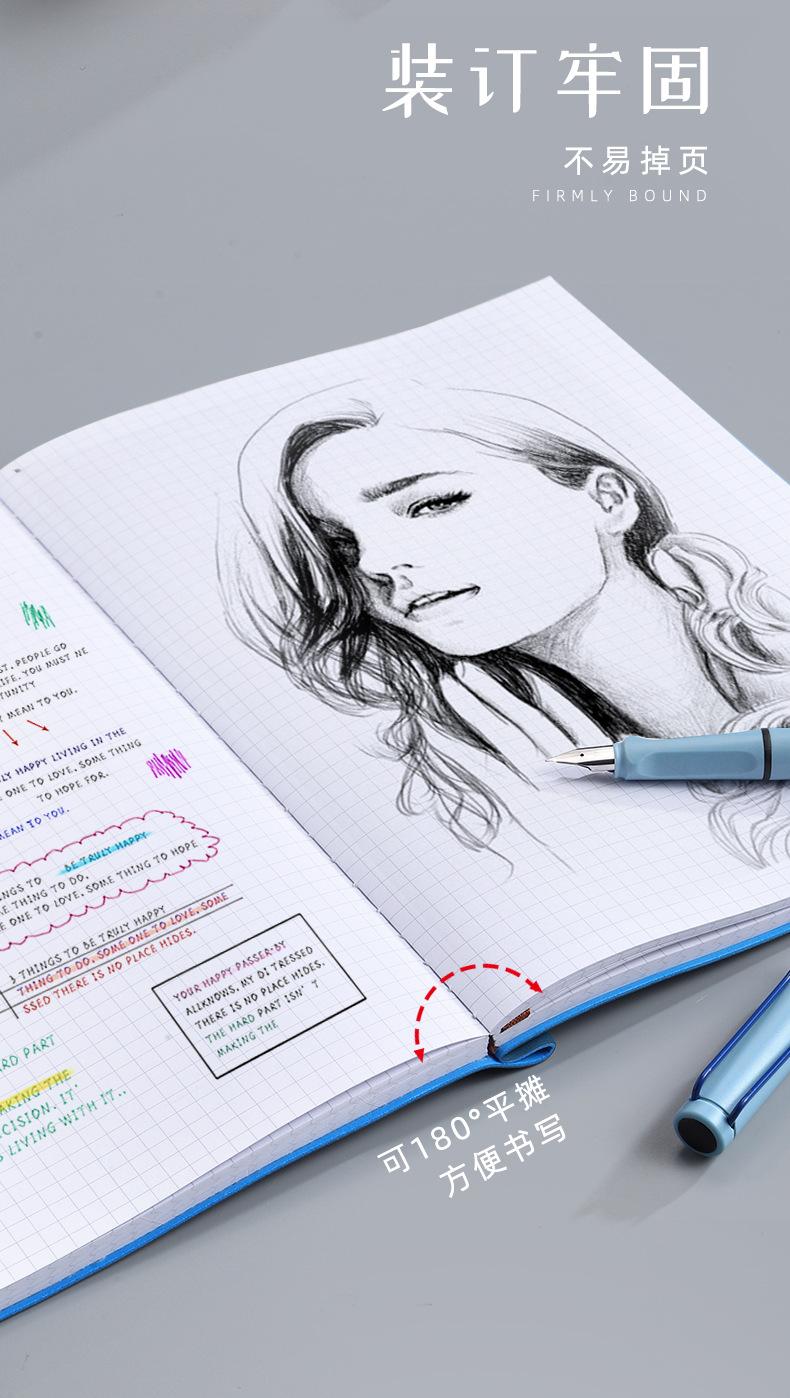 装订牢固
不易掉页
FIRMLY BOUND
ST. PEOPLE GO
LIFE. YOU MUST NE
TUNITY
MEAN TO YOU.
ULY HAPPY LIVING IN THE
E ONE TO LOVE, SOME THING
TO HOPE FOR.
MEAN TO YOU.
INGS TO BE TRULY HAPPY
THING TO DO,
E ONE TO LOVE, SOME THING TO HOPE
3 THINGS TO BE TRULY HAPPY
THING TO DO, SOME ONE TO LOVE, SOME
SSED THERE IS NO PLACE HIDES.
YOUR HAPPY PASSER-BY
ALLKNOWS, MY DI TRESSED
THERE IS NO PLACE HIDES.
THE HARD PART ISN' T
MAKING THE
ARD PART
AKING THE
CISION. IT
LIVING WITH IT..
可180°平摊
方便书写